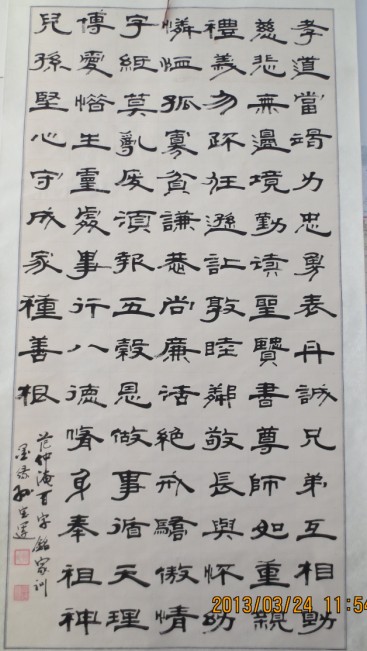 孝道當竭力忠勇表丹誠兄弟互相助
慈悲無邊境勤讀聖賢書尊師如重親
禮義勿疏狂遜让敦睦鄰敬長與懷幼
憐恤孤寡貧謙恭尚廉洁絕戒驕傲情
字紙莫亂废須報五穀恩做事循天理
博愛惜生靈處事行八德脩身奉祖神
兒孫堅心守成家種善根
范仲淹百字銘家训
2013/03/24 11:54